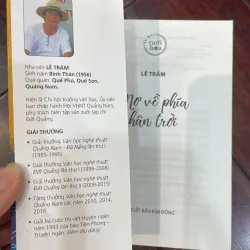 Nhà văn LÊ TRÂM
Sinh năm: Bính Thân (1956)
Quê quán: Quế Phú, Quế Sơn,
Quảng Nam.
Hiện là Chi hội trưởng văn học, ủy viên
ban chấp hành Hội VHNT Quảng Nam,
phụ trách biên tập văn xuôi tạp chí
Đất Quảng.
GIẢI THƯỞNG
• Giải thưởng Văn học nghệ thuật
Quảng Nam - Đà Nẵng lần thứ I
(1985-1995)
• Giải thưởng Văn học nghệ thuật
Đất Quảng lần thứ I (1998-2008)
• Giải thưởng Văn học nghệ thuật
Đất Quảng lần thứ II (2009-2015)
• Tặng thưởng Văn học nghệ thuật
Quảng Nam các năm 2010, 2014,
2016.
• Giải ba cuộc thi viết truyện ngắn
năm 1993 của báo Tiền Phong -
Truyện ngắn
tuổi
hoa
LÊ TRÂM
Mơ về phía
chân trời
XUẤT BẢN KIM ĐỒNG